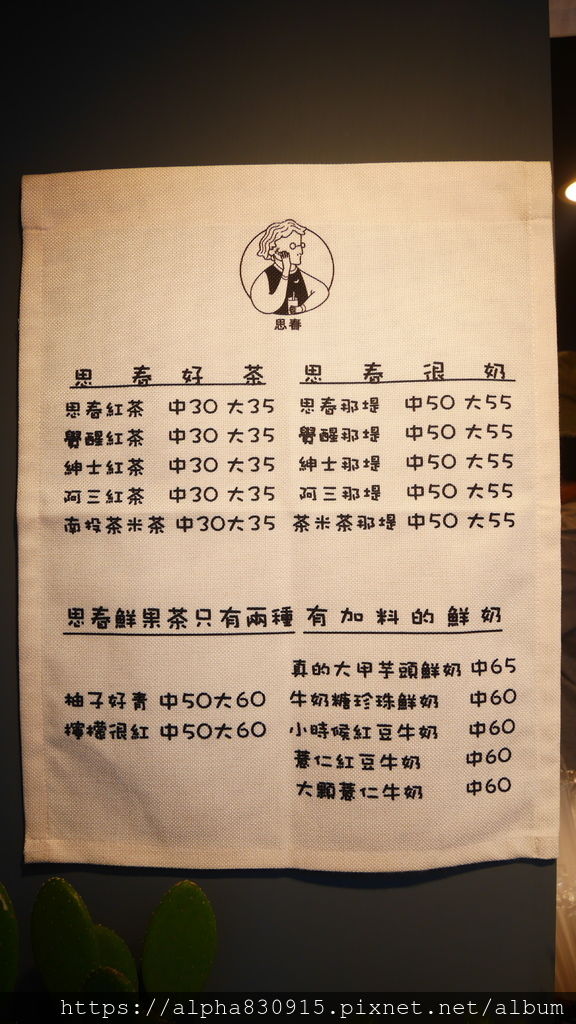 思春
思春好茶
思春紅茶 中30 大35
覺醒紅茶 中30 大35
紳士紅茶 中30 大35
阿三紅茶 中30 大35
南投茶米茶 中30大35
思春很奶
思春那堤 中50 大55
覺醒那堤 中50 大55
紳士那堤 中50 大55
阿三那堤 中50 大55
茶米茶那堤 中50 大55
思春鮮果茶只有兩種
柚子好青 中50大60
檸檬很紅 中50大60
有加料的鮮奶
真的大甲芋頭鮮奶 中65
牛奶糖珍珠鮮奶 中60
小時候紅豆牛奶 中60
薏仁紅豆牛奶 中60
大顆薏仁牛奶 中60
https://alpha830915.pixnet.net/album